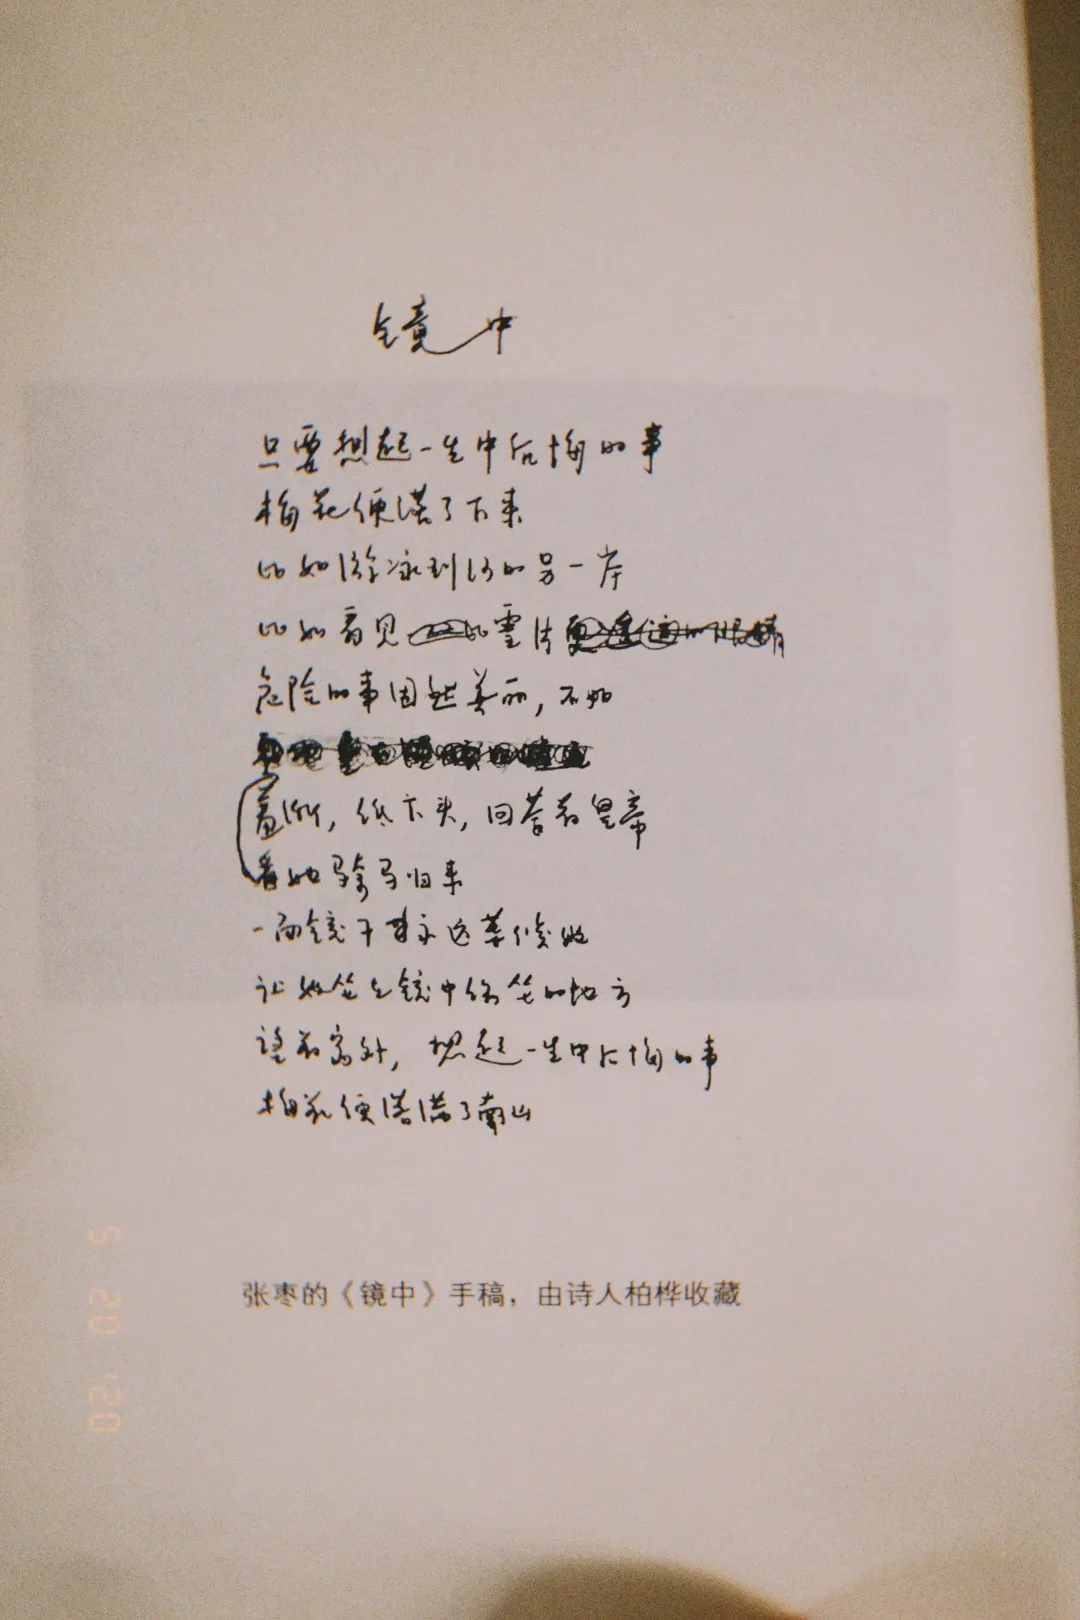 镜中
只要想起一生中后悔的事
梅花便落了下来
比如游泳到河的另一岸
比如看见雪片
危险的事固然美丽，不如
羞惭，低下头，回答着皇帝
看她骑马归来
一面镜子永远等候她
让她坐在镜中坐的地方
望着窗外，想起一生中后悔的事
梅花便落满了南山
张枣的《镜中》手稿，由诗人柏桦收藏
5 20 '20